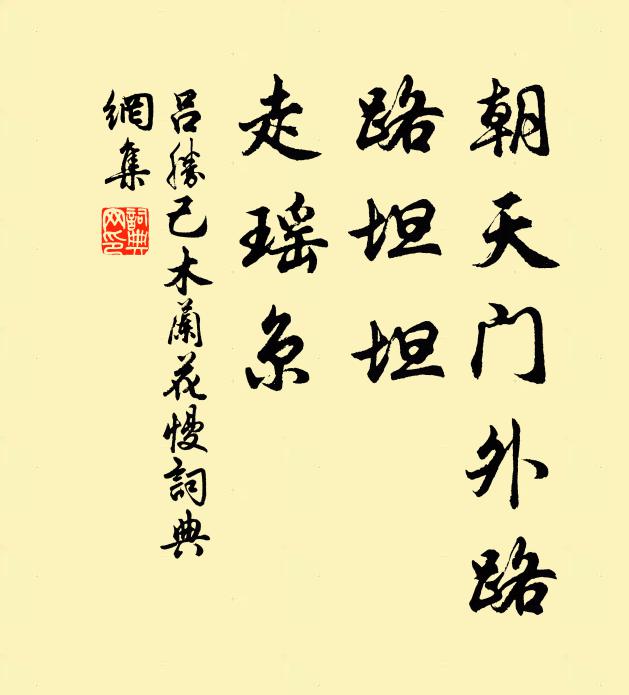 朝天门外路
路坦坦
走瑶京
吕勝己木蘭花慢詞典
網集
詞典
网印